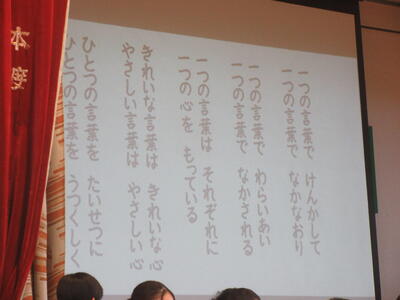 一つの言葉で けんかして
一つの言葉で なかなおり
一つの言葉で わらいあい
一つの言葉で なかされる
一つの言葉は それぞれに
一つの心を もっている
きれいな言葉は きれいな心
やさしい言葉は やさしい心
ひとつの言葉を たいせつに
ひとつの言葉を うつくしく